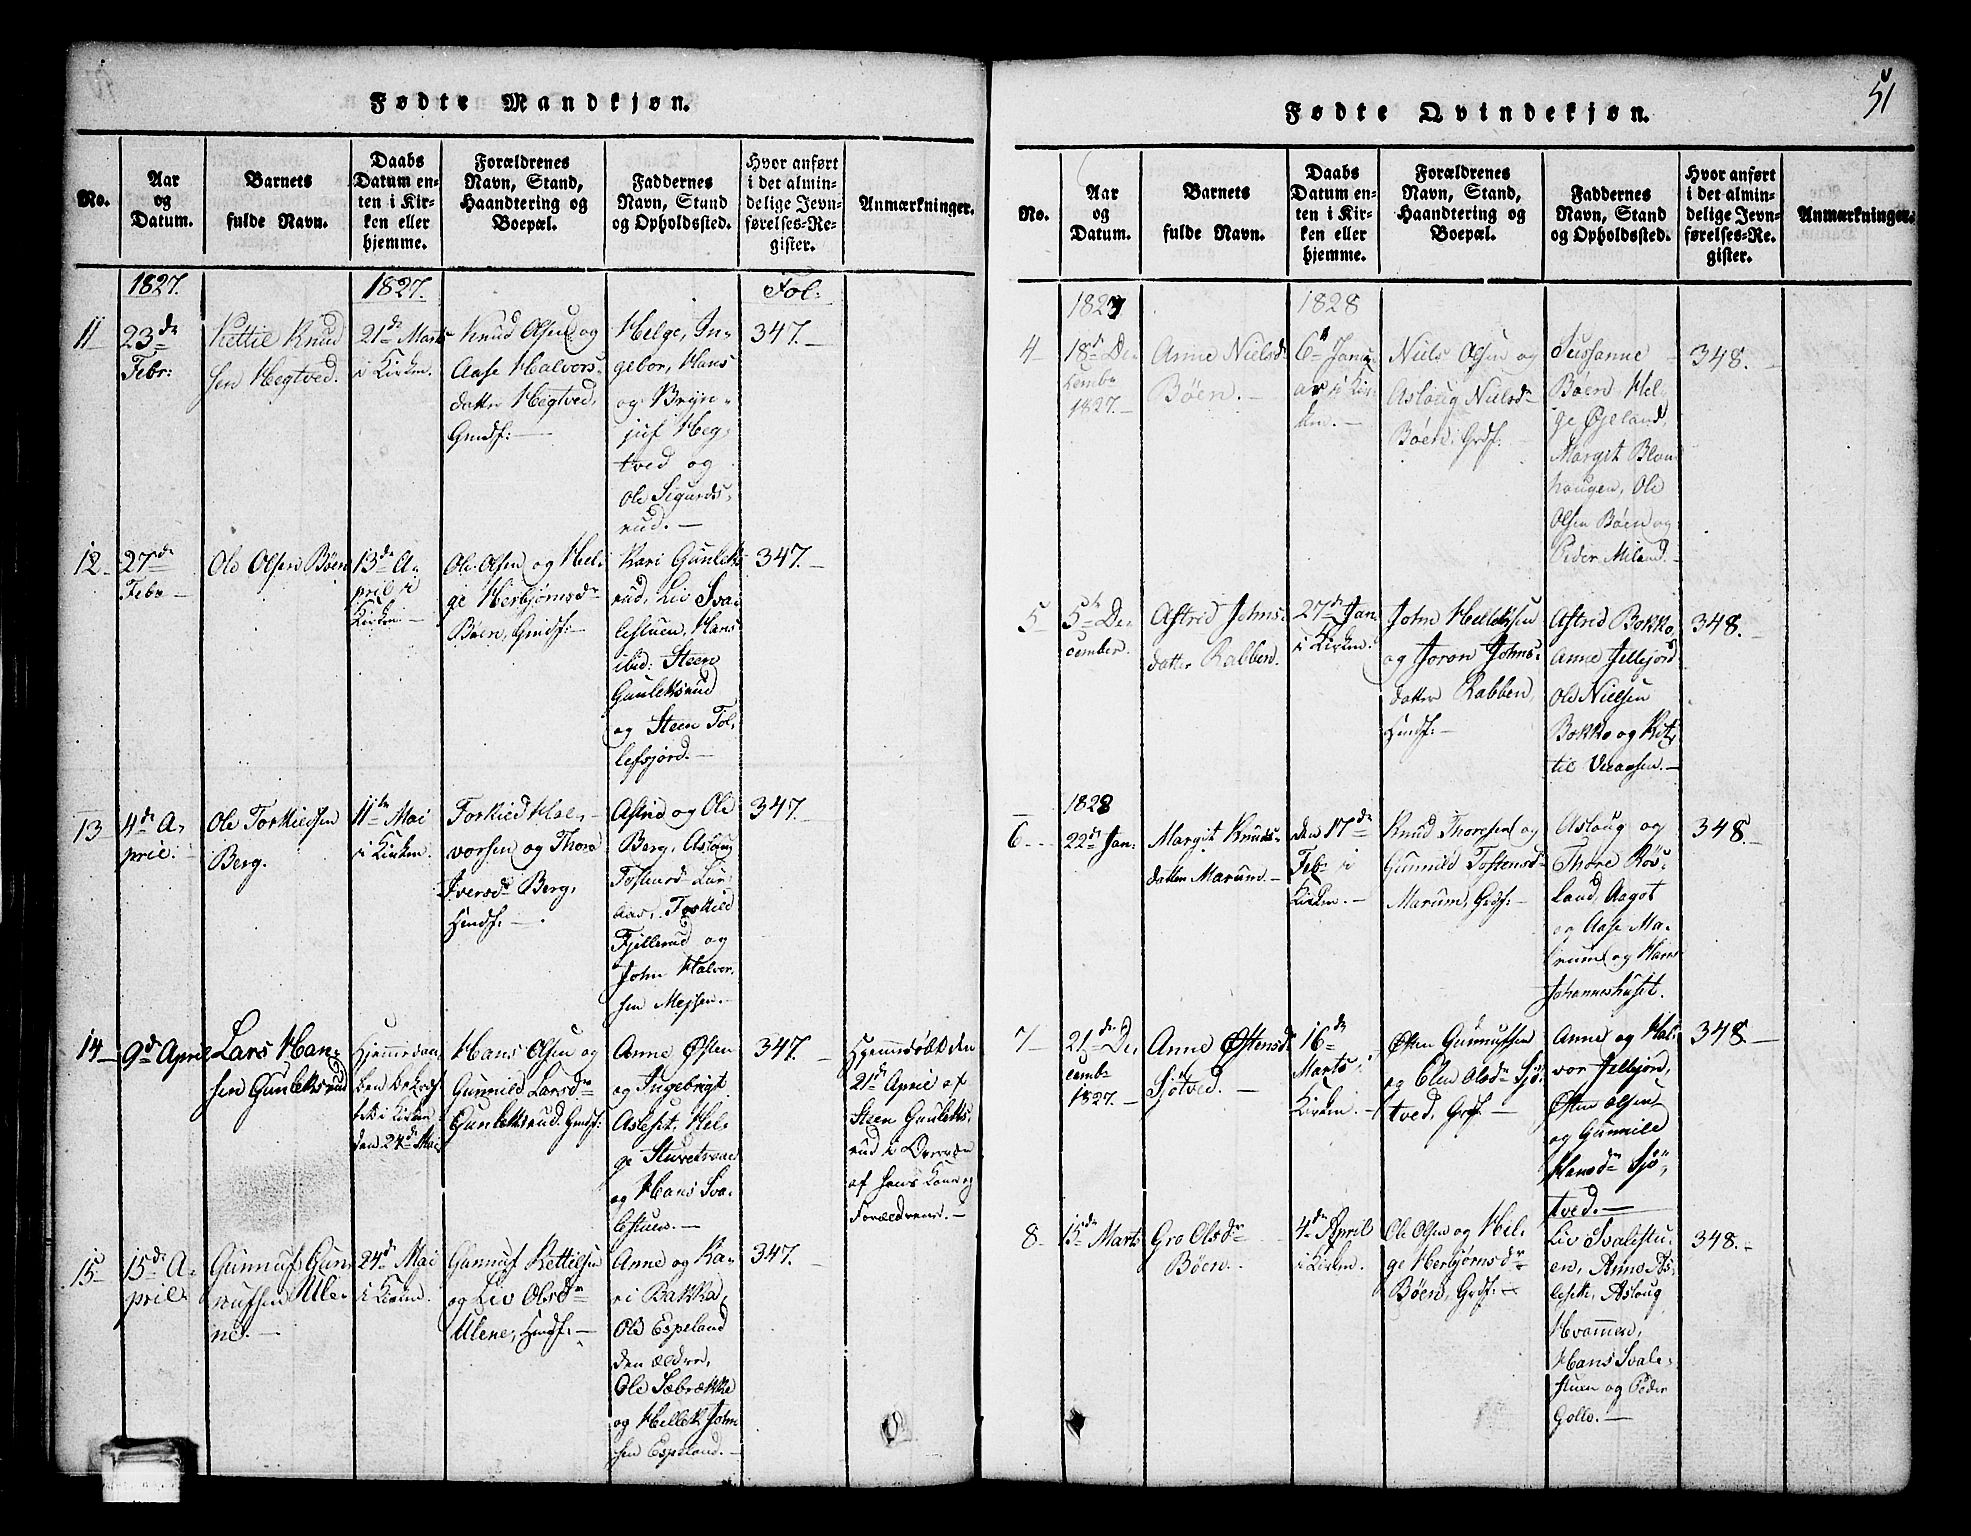 51
Fødte Mandkjøn.
No.
Aar
og
Datum.
Barnets
fulde Navn.
Daabs
Datum en-
ten i Kir-
ken eller
hjemme.
Forældrenes
Navn, Stand,
Haandtering og
Boepæl.
Faddernes
Navn, Stand
og Opholdssted.
Hvor anført
i det almin-
delige Jevn-
førelses-Re-
gister.
Anmærkninger.
1827.
1827.
Fol:
11
23de
Febr:
Kettil Knud
sen Hegtved.
21de Marts
i Kirken.
Knud Olsen og
Aase Halvors-
datter Hegtved,
Gmdf:
Helge, In-
gebor, Hans
og Bryn-
juf Heg-
tved og
Ole Sigurds-
rud.
347.
12
27de
Febr
Ole Olsen Bøen
13de A-
pril i
Kirken.
Ole Olsen og Hel-
ge Herbjørnsdr
Bøen, Gmdf:
Kari Gunleks
rud, Liv Sva-
lestuen, Hans
ibid: Steen
Gunleksrud
og Steen Tol-
lefsjord.
347.
13
4de A-
pril.
Ole Torkildsen
Berg.
11te Mai
i Kirken.
Torkild Hal-
vorsen og Thora
Iversdr Berg,
Hmdf:
Astrid og Ole
Berg, Aslaug
Tostensd
Torkild
Fjellerud og
John Halvor-
sen Mejsen.
347.
14
9de April
Lars Han-
sen Gunleksrud
Hjemmedaa-
ben bekræf-
tet i Kirken
den 24de Mai
Hans Olsen og
Gunnild Larsdr
Gunleksrud. Gmdf:
Anne Østen
og Ingebrigt
Aslefet, Hel-
ge
og Hans Sva-
lestuen.
347.
Hjemmedøbt den
21de April af
Steen Guleks-
rud i Overvær
af hans Kone og
Forældrene.
15
15de A-
pril
Gunnuf Gun-
nufsen Ule-
ne.
24de Mai
i Kirken.
Gunnuf Kettilsen
og Liv Olsdr
Ulene, Hmdf:
Anne og Ka-
ri Bakka,
Ole Espeland
den ældre,
Ole Sebrække
og Hellek John
sen Espeland.
347.
Fødte Qvindekjøn.
No.
Aar
og
Datum.
Barnets
fulde Navn.
Daabs
Datum en-
ten i Kir-
ken eller
hjemme.
Forældrenes
Navn, Stand,
Haandtering og
Boepæl.
Faddernes
Navn, Stand
og Opholdssted.
Hvor anført
i det almin-
delige Jevn-
førelses-Re-
gister.
Anmærkninger.
1827
1828
4
18de De-
cembr
1827.
Anne Nielsdr
Bøen.
6te Janu-
ar i Kir-
ken.
Niels Olsen og
Aslaug Nielsdr
Bøen, Grdf:
Sussanne
Bøen, Hel-
ge Øjeland,
Margit Blom
haugen, Ole
Olsen Bøen og
Peder Miland.
348.
5
5te De-
cember.
Astrid Johns-
datter Rabben.
27de Jan
i Kirken.
John Helleksen
og Joron Johns-
datter Rabben,
Hmdf:
Astrid Bokko,
Anne Jellejord
Ole Nielsen
Bokko og Ket-
til Veraasen.
348.
1828
6
22de Jan:
Margit Knuds-
datter Marum.
den 17de
Feb: i
Kirken.
Knud Thoresen og
Gunnild Tostensdr
Marum, Grdf:
Aslaug og
Thore Røs-
land, Aagot
og Aase Ma-
rum og Hans
Johanneshuset.
348.
7
21de De
cembr
1827.
Anne Østensdr
Sjøtved.
16de
Marts i
Kirken.
Østen Gunnufsen
og Elen Olsdr Sjø-
tved, Grdf.
Anne og Hal-
vor Jellejord,
Østen Olsen
og Gunnild
Hansdr Sjø-
tved.
348.
8
15de Marts
Gro Olsdr
Bøen.
4de April
i Kirken.
Ole Olsen og Hel-
ge Herbjørnsdr
Bøen, Grdf:
Liv Svalestu-
en, Anne As-
lefet, Aslaug
Hvammen,
Hans Svale-
stuen og Peder
Gollo.
348.